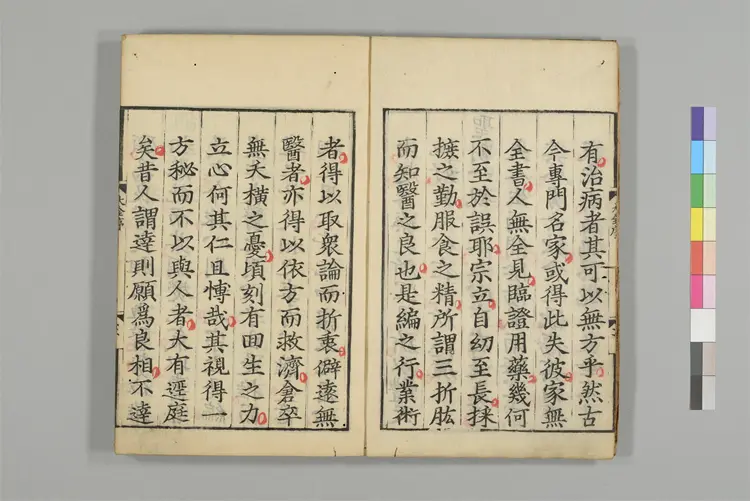 有治病者其可以無方乎然古
今專門名家或得此失彼家無
全書人無全見臨證用藥幾何
不至於誤耶宗立自幼至長採
摭之勤服食之精所謂三折肱
而知醫之良也是編之行業術
者得以取衆論而折衷僻遠無
醫者亦得以依方而救濟倉卒
無夭橫之憂頃刻有回生之力
立心何其仁且慱哉其視得一
方秘而不以與人者大有逕庭
矣昔人謂達則願爲良相不達